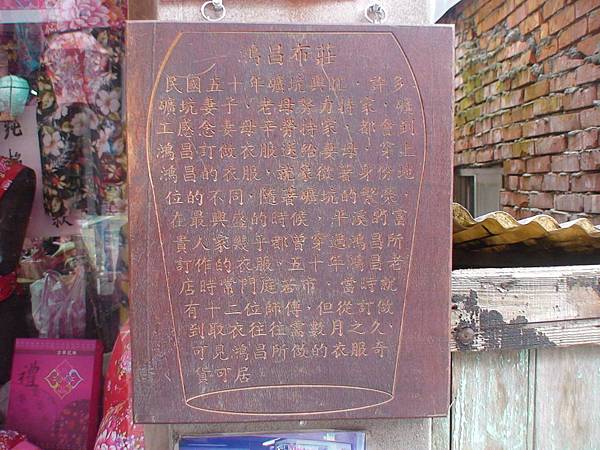 鴻昌布莊
民國五十年礦坑興旺，許多
礦坑妻子、老母努力持家，礦
工感念妻母辛勞持家，都會到
鴻昌訂做衣服送給妻母，穿上
鴻昌的衣服，就象徵著身份地
位的不同，隨著礦坑的繁榮，
在最興盛的時候，平溪的富
貴人家幾乎都曾穿過鴻昌所
訂作的衣服。五十年鴻昌老
店時常門庭若市，當時就
有十二位師傅，但從訂做
到取衣往往需數月之久，
可見鴻昌所做的衣服奇
貨可居
禮